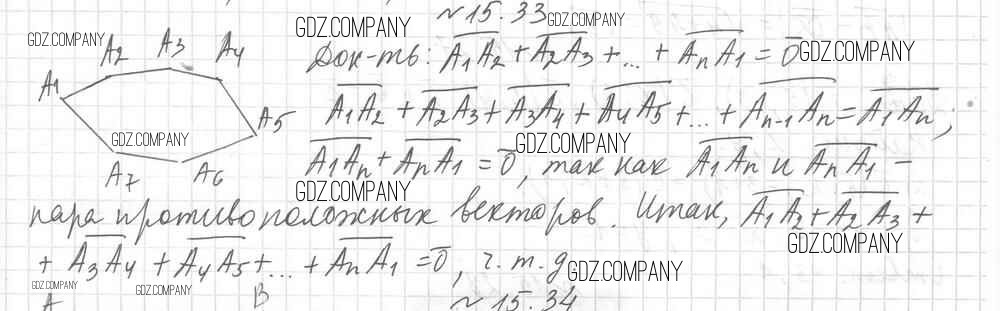 ~ 15.33
GDZ.COMPANY GDZ.COMPANY GDZ.COMPANY
A1 A2 A3 A4 A5 A6 A7
Док-ть: A₁A₂ + A₂A₃ + ... + AₙA₁ = 0 GDZ.COMPANY
A₁A₂ + A₂A₃ + A₃A₄ + A₄A₅ + ... + Aₙ₋₁Aₙ = A₁Aₙ;
GDZ.COMPANY GDZ.COMPANY
A₁Aₙ + AₙA₁ = 0, так как A₁Aₙ и AₙA₁ –
GDZ.COMPANY
пара противоположных векторов. Итак, A₁A₂ + A₂A₃ +
GDZ.COMPANY
+ A₃A₄ + A₄A₅ + ... + AₙA₁ = 0, ч. т. д
GDZ.COMPANY
GDZ.COMPANY GDZ.COMPANY
A B
~ 15.34